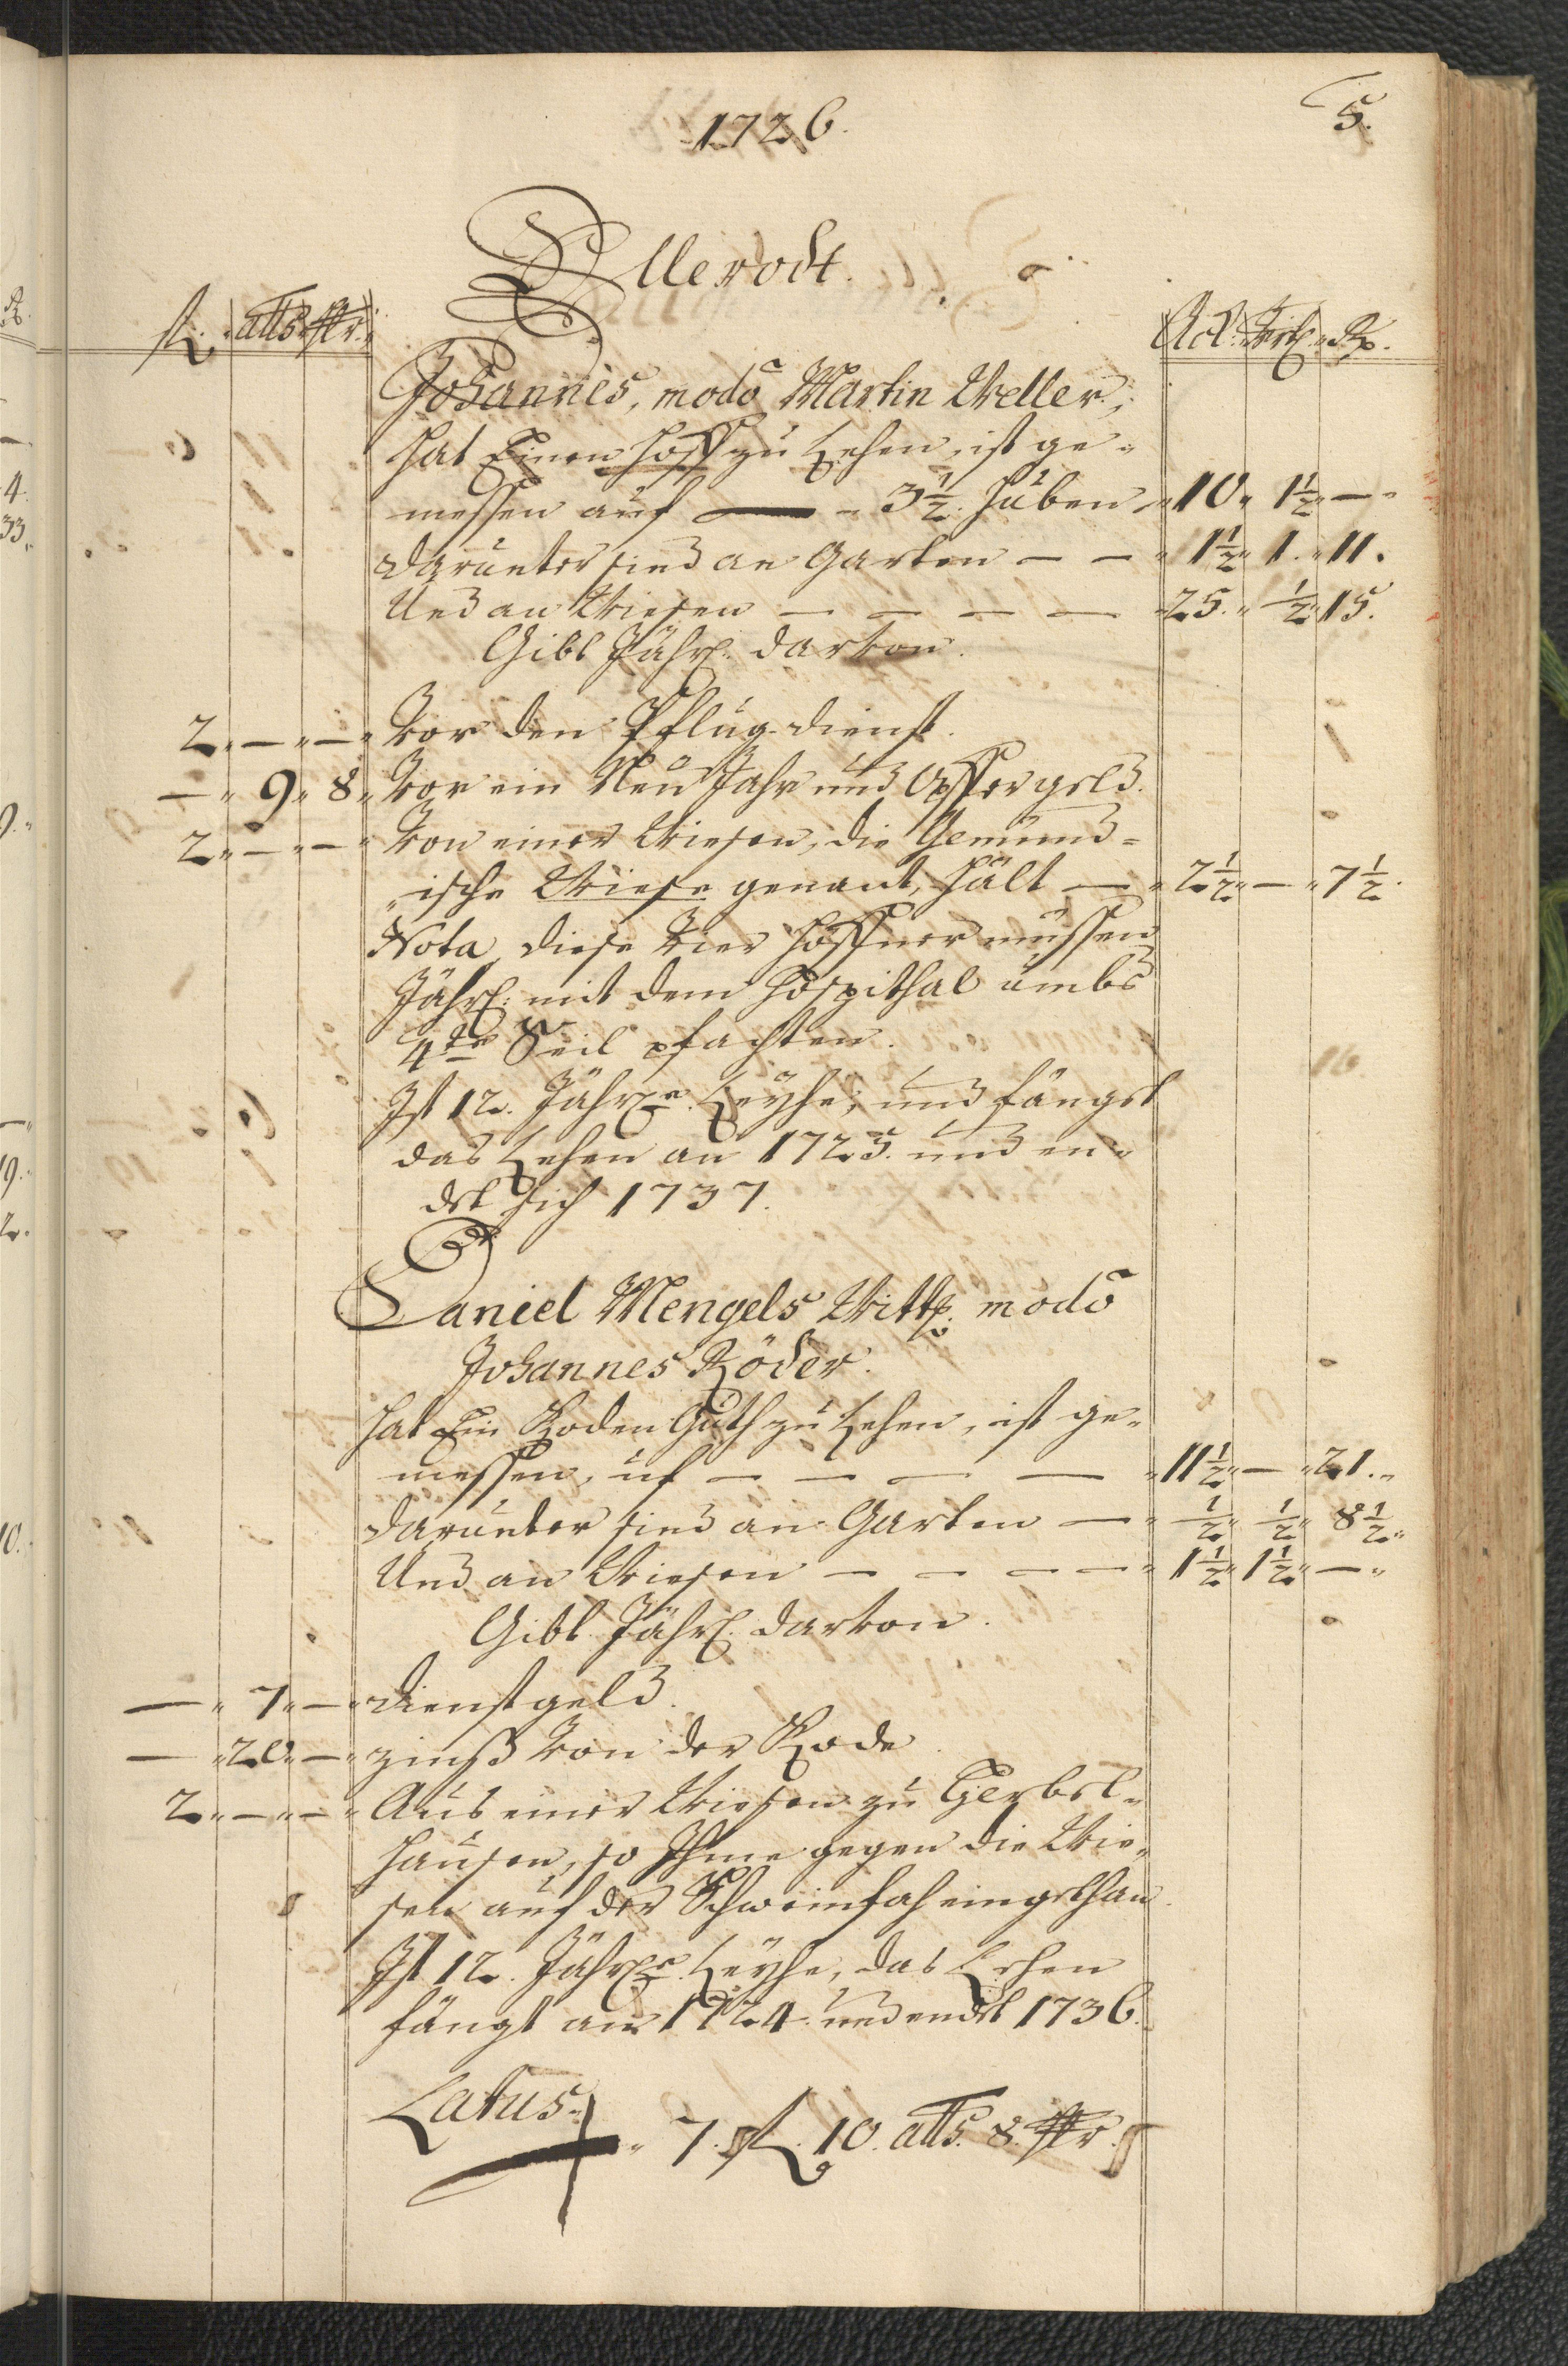 1726.
5.
Ellerodt.
fl. alb. hlr.
Ack. Vrtl. R.
Johannes, modo Martin Weller,
hat Einen Hoff zu Lehen, ist ge-
messen auf — 3½. Huben 10. 1½ —
darunter sind an Garten — — 1½ 1. 11.
Und an Wiesen — — — — 25. ½ 15.
Gibt Jährl. darvon.
2. — — Vor den Pflug dienst.
— 9. 8. Vor ein Neu Jahr und Opffergeld.
2. — — Von einer Wiesen, die Gemünd-
ische Wiese genant, hält — 2½ — 7½.
Nota, diese vier Höffner müssen
Jährl: mit dem Hospithal umbs
4te Seil pfachten.
Ist 12. Jährl. Leyhe; und fängt
das Lehen an 1725. und en-
det sich 1737.
Daniel Mengels Wittb. modo
Johannes Röder.
hat Ein Roden Guth zu Lehen, ist ge-
messen, uf — — — — 11½ — 21.
darunter sind an Garten — ½ ½ 8½
Und an Wiesen — — — — 1½ 1½ —
Gibt Jährl. darvon.
— 7. — dienstgeld.
— 20. — zinß von der Rode.
2. — — Aus einer Wiesen zu
hausen, so Ihme gegen die Wie-
sen auf der eingethan.
Ist 12. Jährl. Leyhe, das Lehen
fängt an 1724. und endet 1736.
Latus
7. fl. 10. alb. 8. hlr.